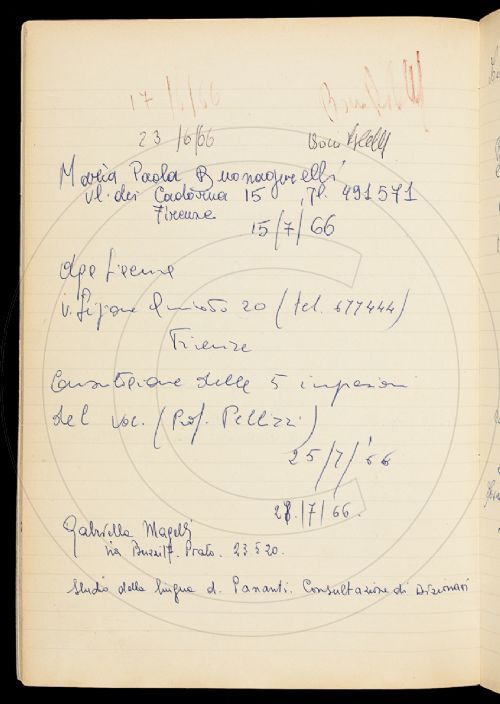 17/6/66
23/6/66
Maria Paola Buonaguerelli
Vl. dei Cadorna 15 Tl. 491571
Firenze
15/7/66
20 (tel. 677444)
Firenze
Consultazione delle 5 impressioni
del voc. (Prof. Pellizzi)
25/7/66
28/7/66.
Gabriella Magelli
via 7. Prato. 23520.
Studio della lingua d. Pananti. Consultazione di Dizionari